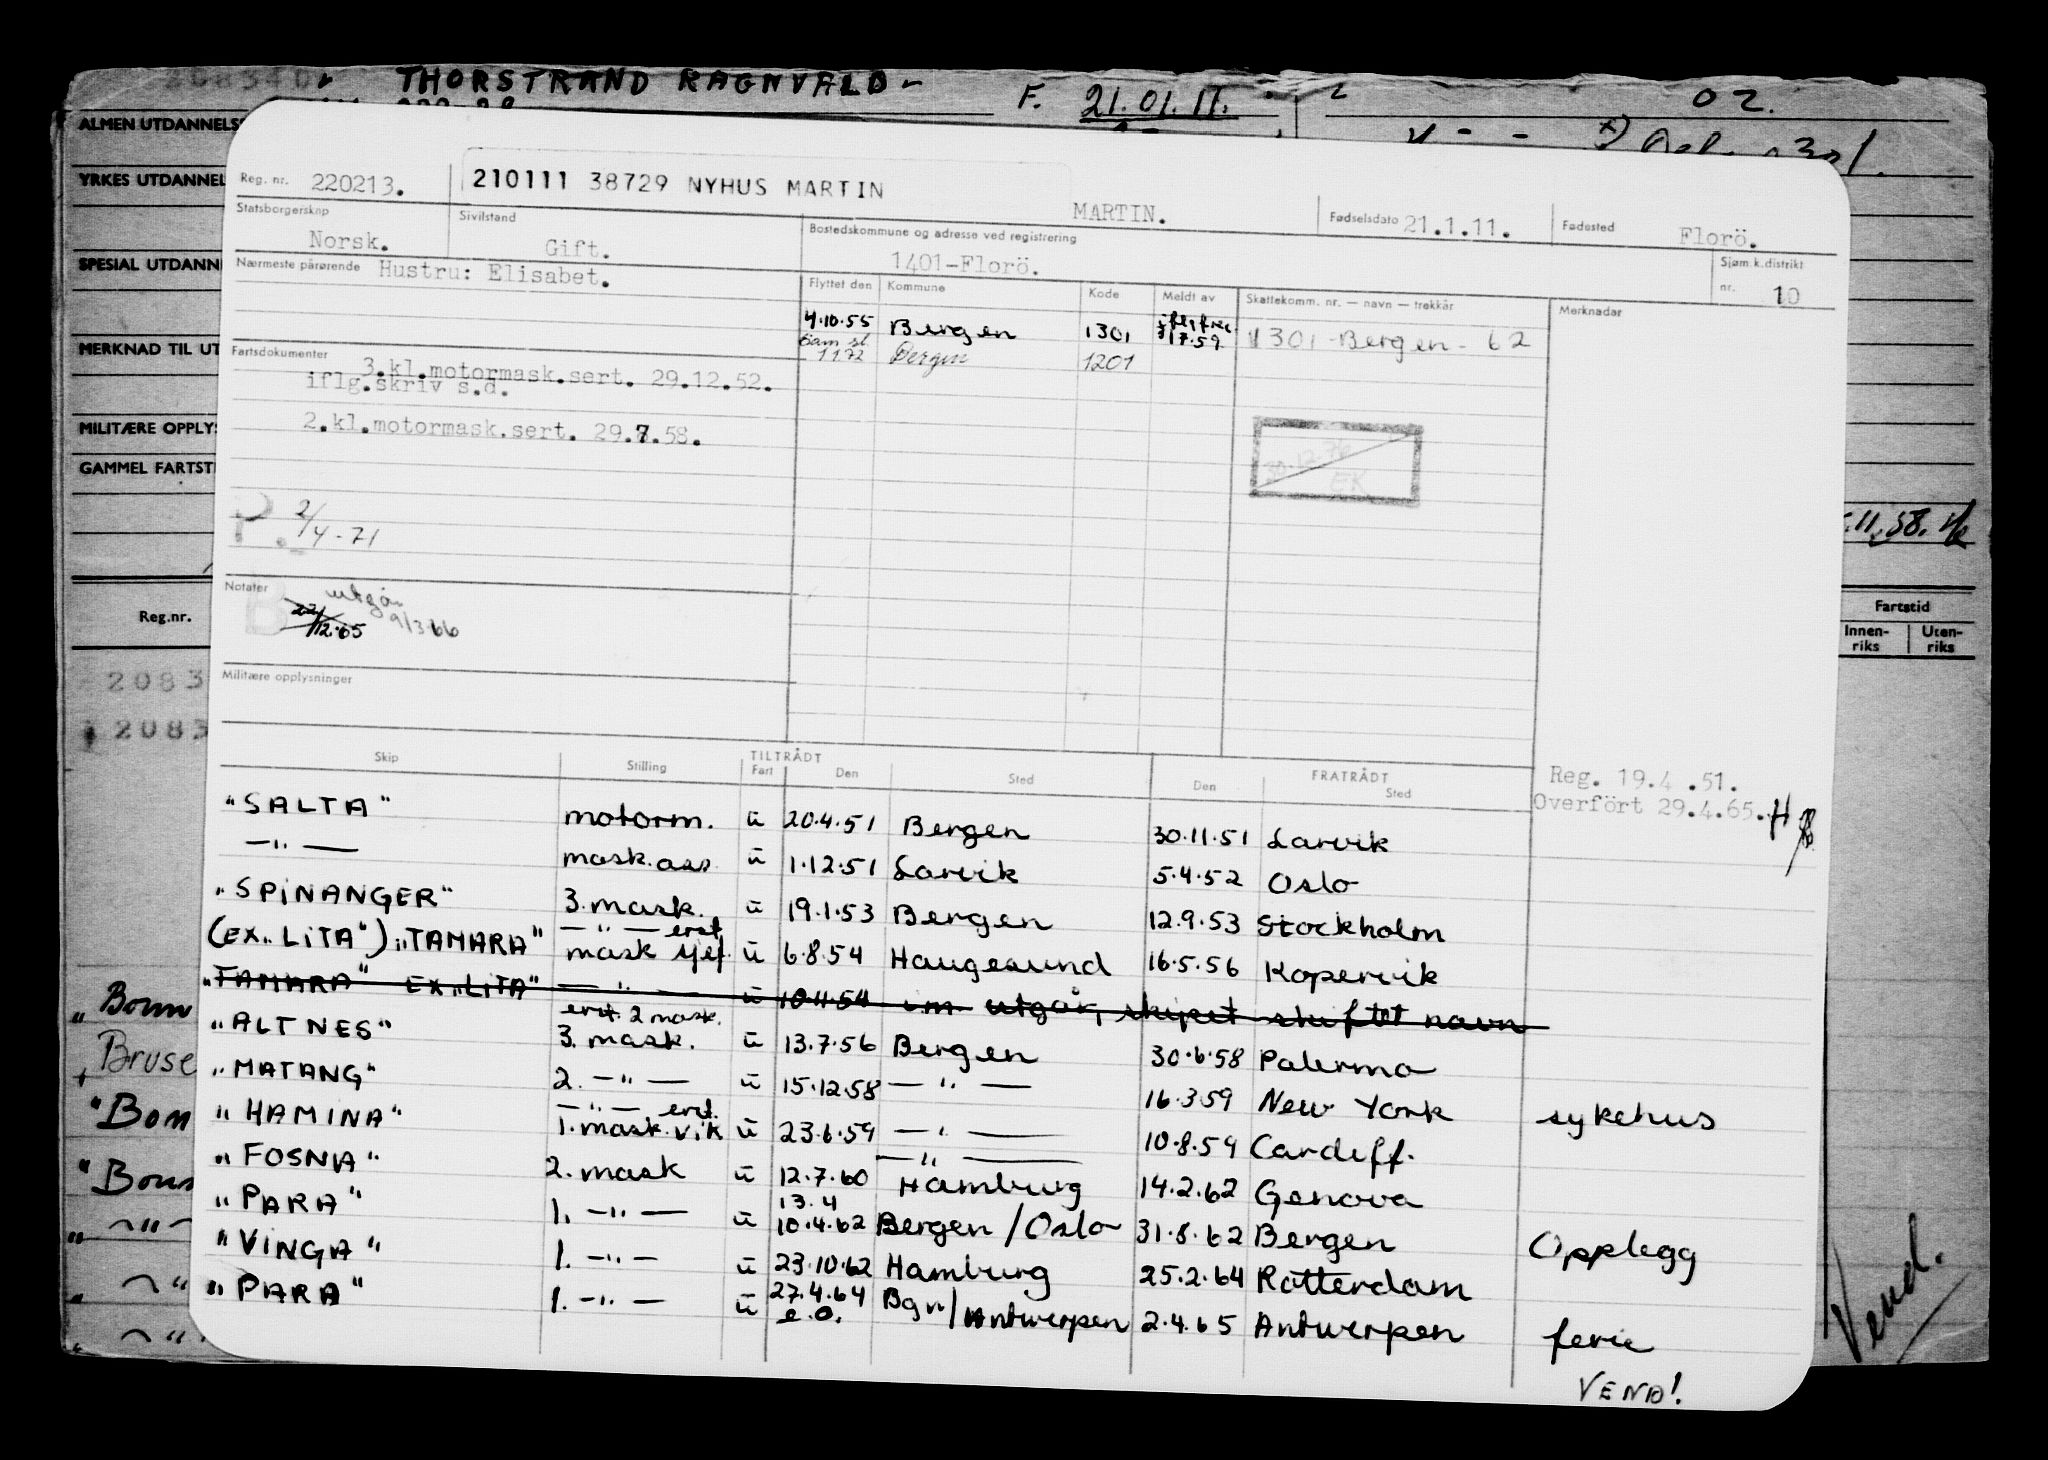 THORSTRAND RAGNVALD
F. 21.01.11.
02.
ALMEN UTDANNELSE
YRKES UTDANNEL
SPESIAL UTDANN
MERKNAD TIL UT
MILITÆRE OPPLYS
GAMMEL FARTSTI
.11.58.
Reg.nr.
Fartstid
Innen-riks
Uten-riks
2083
2083
Reg. nr. 220213.
210111 38729 NYHUS MARTIN
MARTIN.
Fødselsdato 21.1.11.
Fødested Florö.
Statsborgerskap Norsk.
Sivilstand Gift.
Bostedskommune og adresse ved registrering
1401-Florö.
Sjøm.k.distrikt nr. 10
Nærmeste pårørende Hustru: Elisabet.
Flyttet den Kommune Kode Meldt av Skattekomm. nr. — navn — trekkår Merknader
4.10.55 Bergen 1301 17.59 1301-Bergen-62
Sam sl 1172 Bergen 1201
Fartsdokumenter
3.kl.motormask.sert. 29.12.52.
iflg.skriv s.d.
2.kl.motormask.sert. 29.7.58.
30.12.76
EK
P. 2/4-71
Notater
utgår
22/12.65 9/3.66
Militære opplysninger
Skip Stilling TILTRÅDT Fart Den Sted FRATRÅDT Den Sted
Reg. 19.4 .51.
Overfört 29.4.65.
"SALTA" motorm. u 20.4.51 Bergen 30.11.51 Larvik
—"— mask.ass. u 1.12.51 Larvik 5.4.52 Oslo
"SPINANGER" 3.mask. u 19.1.53 Bergen 12.9.53 Stockholm
(EX "LITA") "TAMARA" —"— erst. mask sjef. u 6.8.54 Haugesund 16.5.56 Kopervik
"TAMARA" EX "LITA" —"— u 10.11.54 i.m. utgår, skipet skiftet navn
"ALTNES" erst. 2 mask. 3. mask. u 13.7.56 Bergen 30.6.58 Palermo
"MATANG" 2. —"— u 15.12.58 —"— 16.3.59 New York sykehus
"HAMINA" —"— erst. 1.mask.vik u 23.6.59 —"— 10.8.59 Cardiff.
"FOSNA" 2. mask u 12.7.60 —"— Hamburg 14.2.62 Genova
"PARA" 1. —"— u 13.4 10.4.62 Bergen/Oslo 31.8.62 Bergen Opplegg
"VINGA" 1. —"— u 23.10.62 Hamburg 25.2.64 Rotterdam
"PARA" 1. —"— u 27.4.64 e.o. Bgn/Antwerpen 2.4.65 Antwerpen ferie
VEND!
"Bom
Bruse
"Bom
"Bom
Vend.